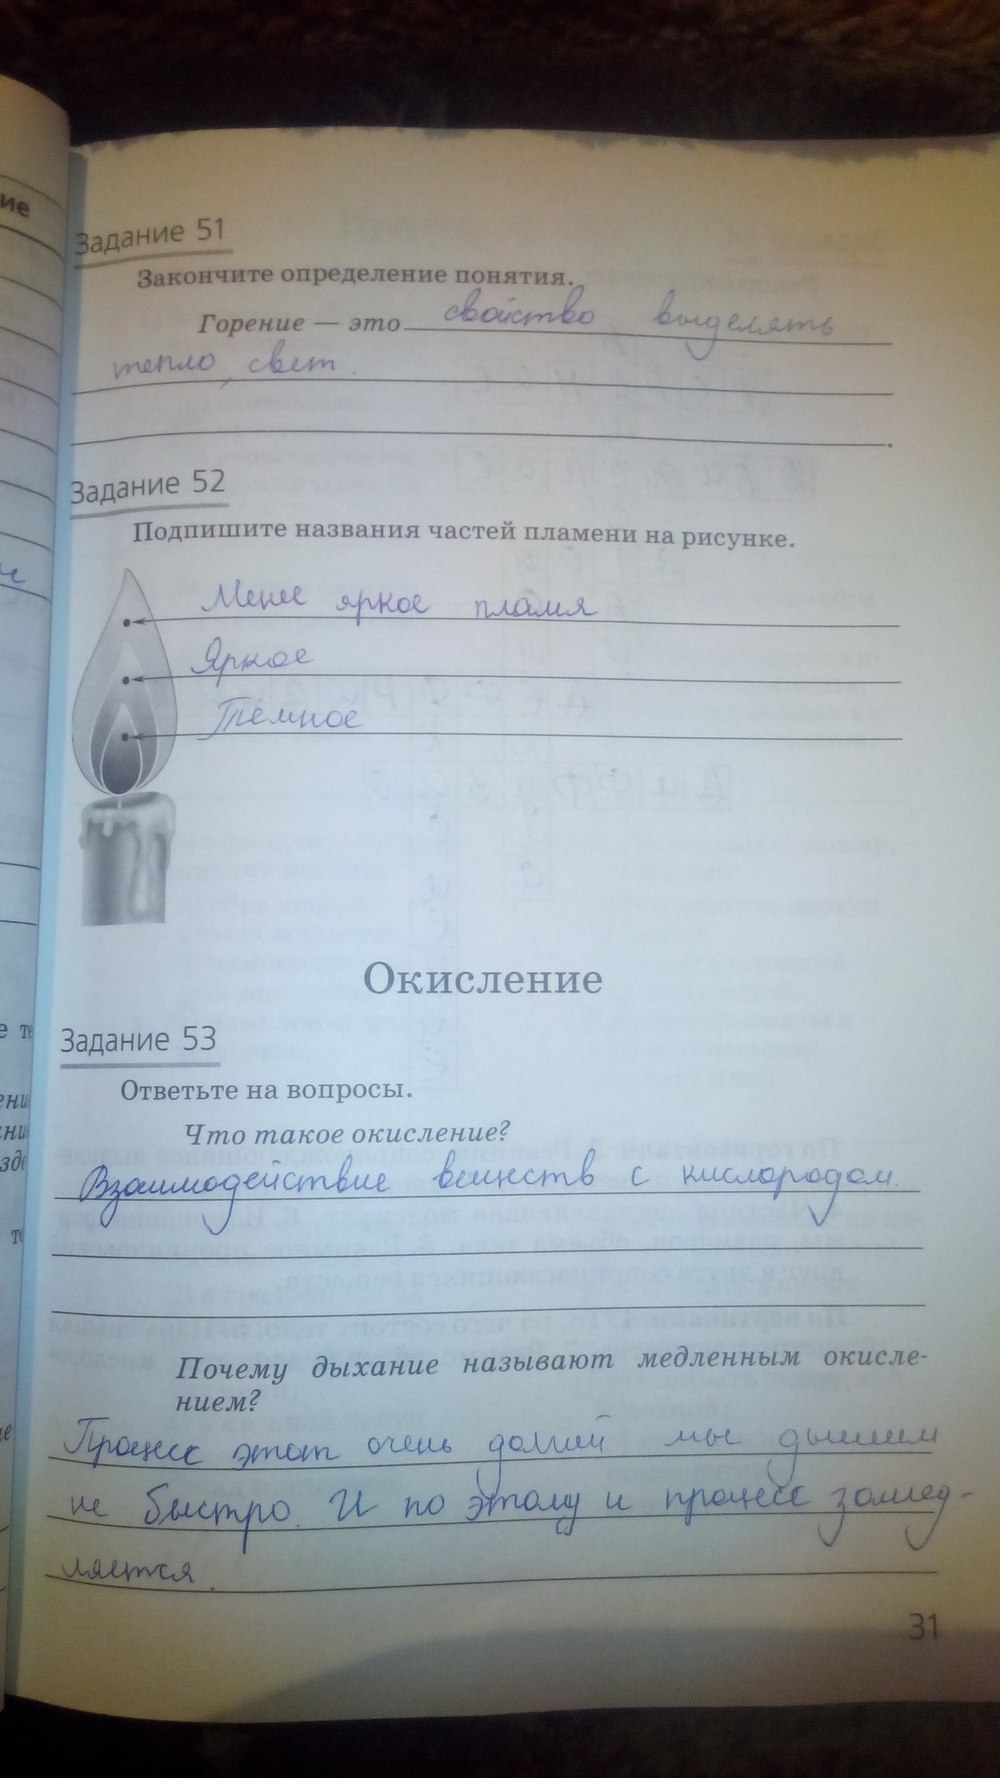 ие
Задание 51
Закончите определение понятия.
Горение — это свойство выделять
тепло, свет.
Задание 52
Подпишите названия частей пламени на рисунке.
Менее яркое пламя
Яркое
Тёмное
Окисление
Задание 53
Ответьте на вопросы.
Что такое окисление?
Взаимодействие веществ с кислородом.
Почему дыхание называют медленным окисле-
нием?
Процесс этот очень долгий мы дышим
не быстро. И по этому и процесс замед-
ляется.
31